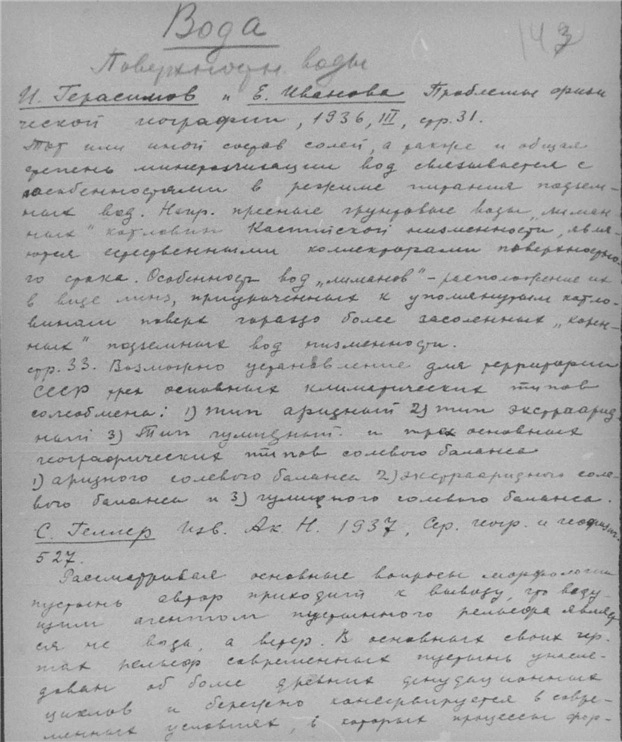 Вода
143
Поверхность воды
И. Герасимов и Е. Иванова Проблемы физи
ческой географии, 1936, III, стр. 31.
Тот или иной состав солей, а также и общая
степень минерализации вод связывается с
особенностями в режиме питания подзем-
ных вод. Напр. пресные грунтовые воды „лиман-
ных" котловин Каспийской низменности, явля-
ются естественными коллекторами поверхностно-
го стока. Особенность вод „лиманов" – расположение их
в виде линз, приуроченных к упомянутым котло-
винам поверх гораздо более засоленных „корен-
ных" подземных вод низменности.
стр. 33. Возможно установление для территории
СССР трех основных климатических типов
солеобмена: 1) тип аридный 2) тип экстраарид-
ный 3) Тип гумидный. и трех основных
географических типов солевого баланса
1) аридного солевого баланса 2) экстрааридного соле-
вого баланса и 3) гумидного солевого баланса.
С. Геллер Изв. Ак. Н. 1937, Сер. геогр. и геофиз.
527.
Рассматривая основные вопросы морфологии
пустынь автор приходит к выводу, что веду-
щим агентом пустынного рельефа являет
ся не вода, а ветер. В основных своих чер-
тах рельеф современных пустынь унасле-
дован от более древних денудационных
циклов и бережно консервируется в совре-
менных условиях, в которых процессы фор-